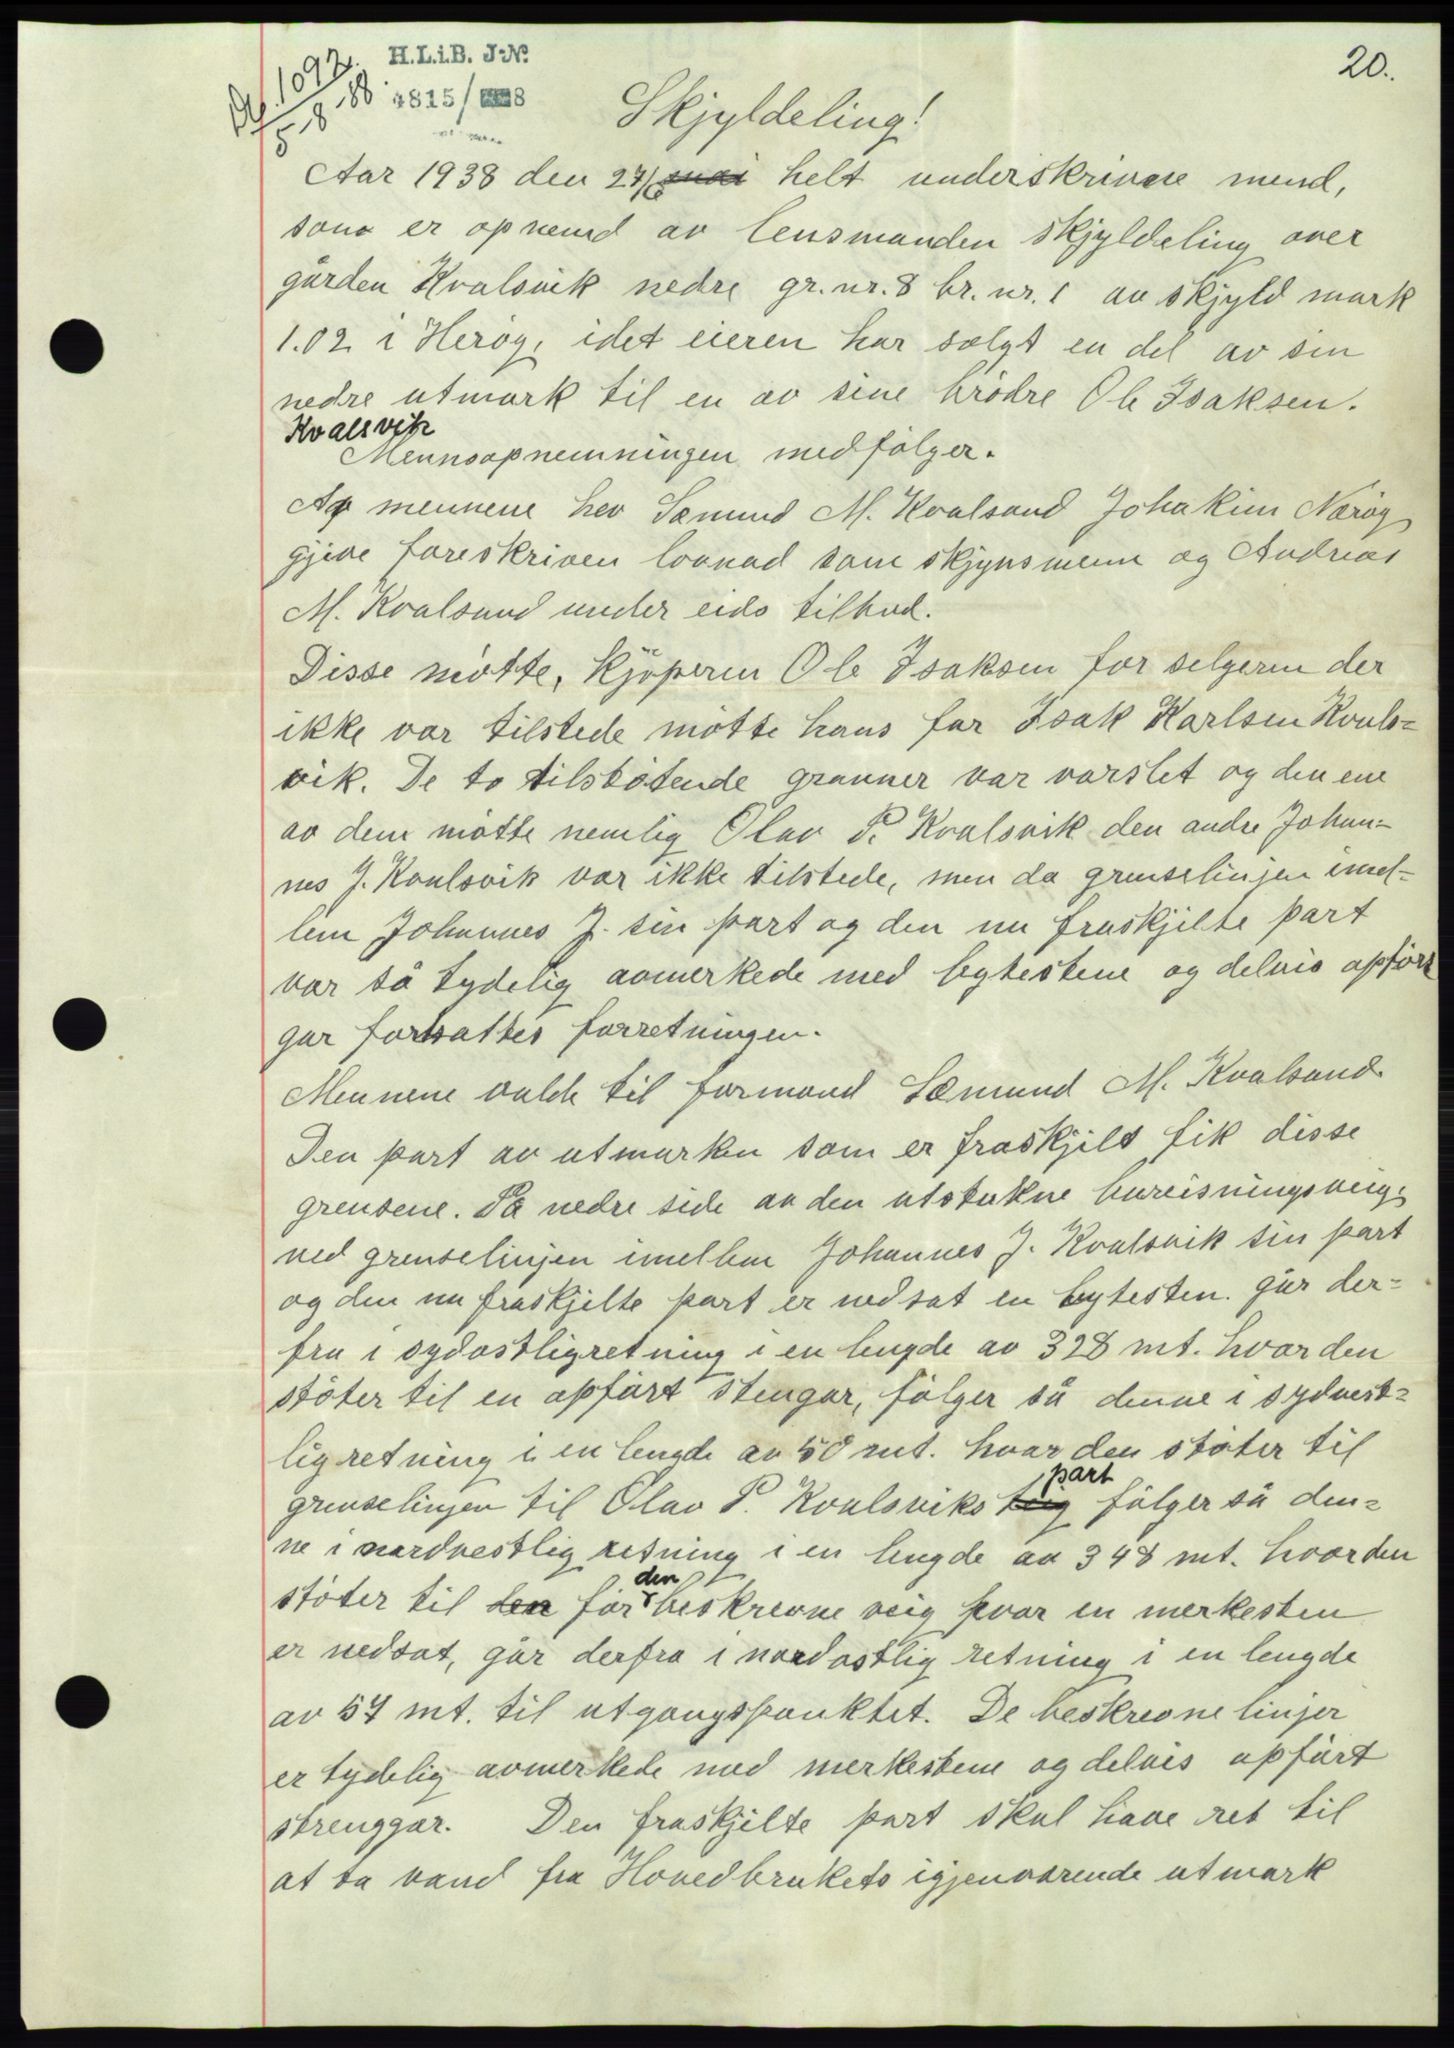 20.
H.L.i.B. J-№.
4815/ 8
1092
5-8-38
Skjyldeling!
Aar 1938 den 27/6 helt underskrivne mend,
som er opnemd av lensmanden skjyldeling over
gården Kvalsvik nedre gr. nr. 8 br. nr. 1 av skjyld mark
1.02 i Herøy, idet eieren har solgt en del av sin
nedre utmark til en av sine brødre Ole Isaksen.
Kvalsvik
Mennsopnemningen medfølger.
Av mennene hev Sæmund M. Kvalsund Johakim Nærøy
gjeve foreskriven lovnad som skjynsmenn og Andreas
M. Kvalsund under eids tilbud.
Disse møtte, kjøperen Ole Isaksen for selgeren der
ikke var tilstede møtte hans far Isak Karlsen Kvals-
vik. De to tilstøtende granner var varslet og den ene
av dem møtte nemlig Olav P. Kvalsvik den andre Johan-
nes J. Kvalsvik var ikke tilstede, men da grenselinjen imel-
lem Johannes J. sin part og den nu fraskjilte part
var så tydelig avmerkede med bytestene og delvis opført
gar fortsattes forretningen.
Mennene valde til formand Sæmund M. Kvalsund.
Den part av utmarken som er fraskjilt fik disse
grensene. På nedre side av den utstukne bureisningsveig
ved grenselinjen imellem Johannes J. Kvalsvik sin part
og den nu fraskjelte part er nedsat en bytesten. går der-
fra i sydøstligretning i en lengde av 328 mt. hvor den
støter til en opført stengar, følger så denne i sydvest-
lig retning i en lengde av 50 mt. hvor den støter til
grenselinjen til Olav P. Kvalsviks teig part følger så den-
ne i nordvestlig retning i en lengde av 348 mt. hvor den
støter til den før den beskrevne veig hvor en merkesten
er nedsat, går derfra i nordøstlig retning i en lengde
av 57 mt. til utgangspunktet. De beskrevne linjer
er tydelig avmerkede med merkestene og delvis opført
strenggar. Den fraskjilte part skal have ret til
at ta vand fra Hovedbrukets igjenværende utmark